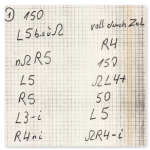 ① 150
L5 bsü Ω
nΩR5
L5
R5
L3-i
R4ni
voll durch Zul
R4
150
ΩL4+
50
L5
ΩR4-i